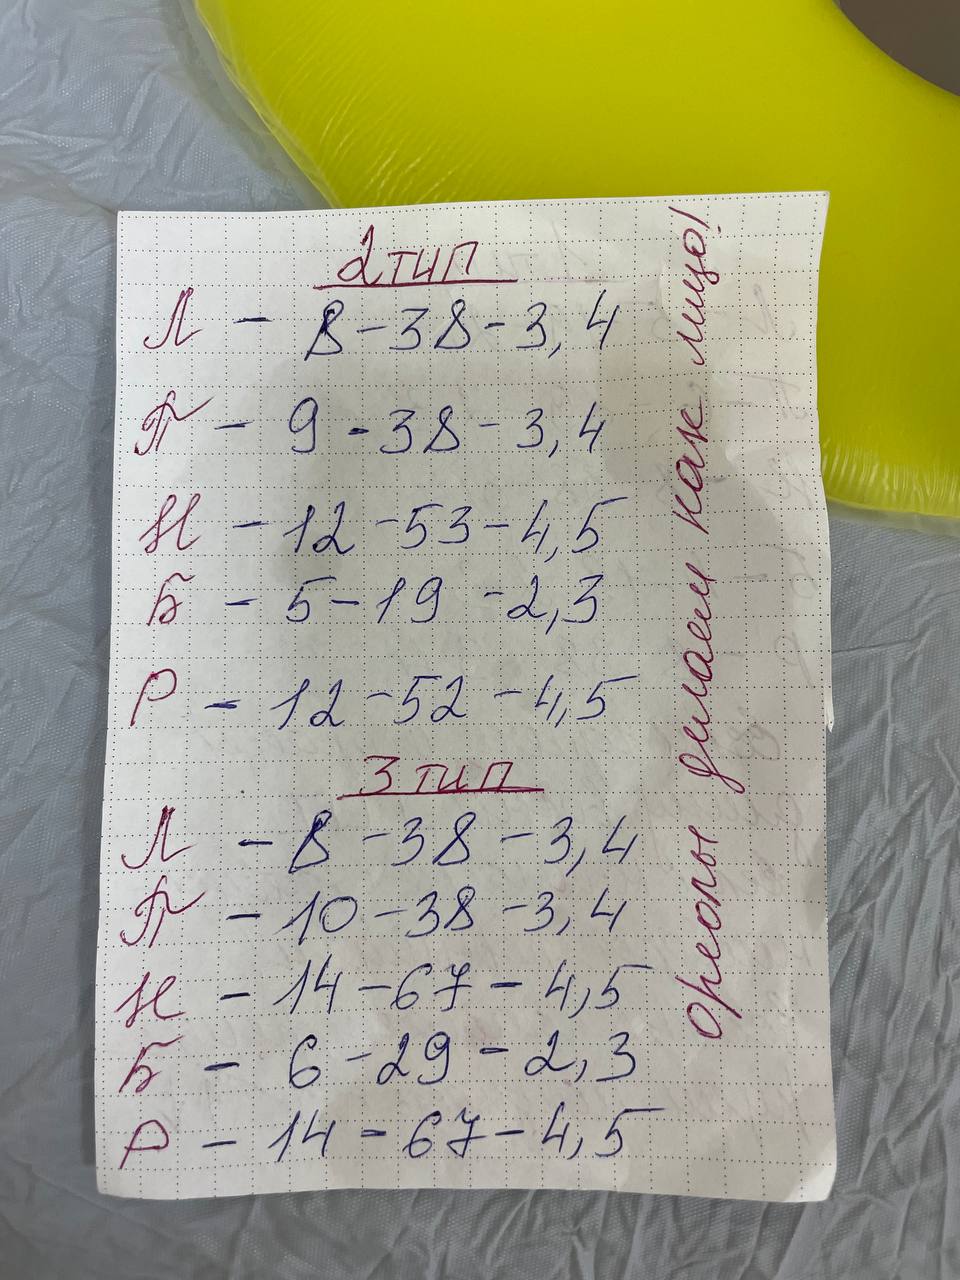 2 тип
Л - 8 - 38 - 3,4
П - 9 - 38 - 3,4
Н - 12 - 53 - 4,5
Б - 5 - 19 - 2,3
Р - 12 - 52 - 4,5
3 тип
Л - 8 - 38 - 3,4
П - 10 - 38 - 3,4
Н - 14 - 67 - 4,5
Б - 6 - 29 - 2,3
Р - 14 - 67 - 4,5
ореолы делаем как лицо!